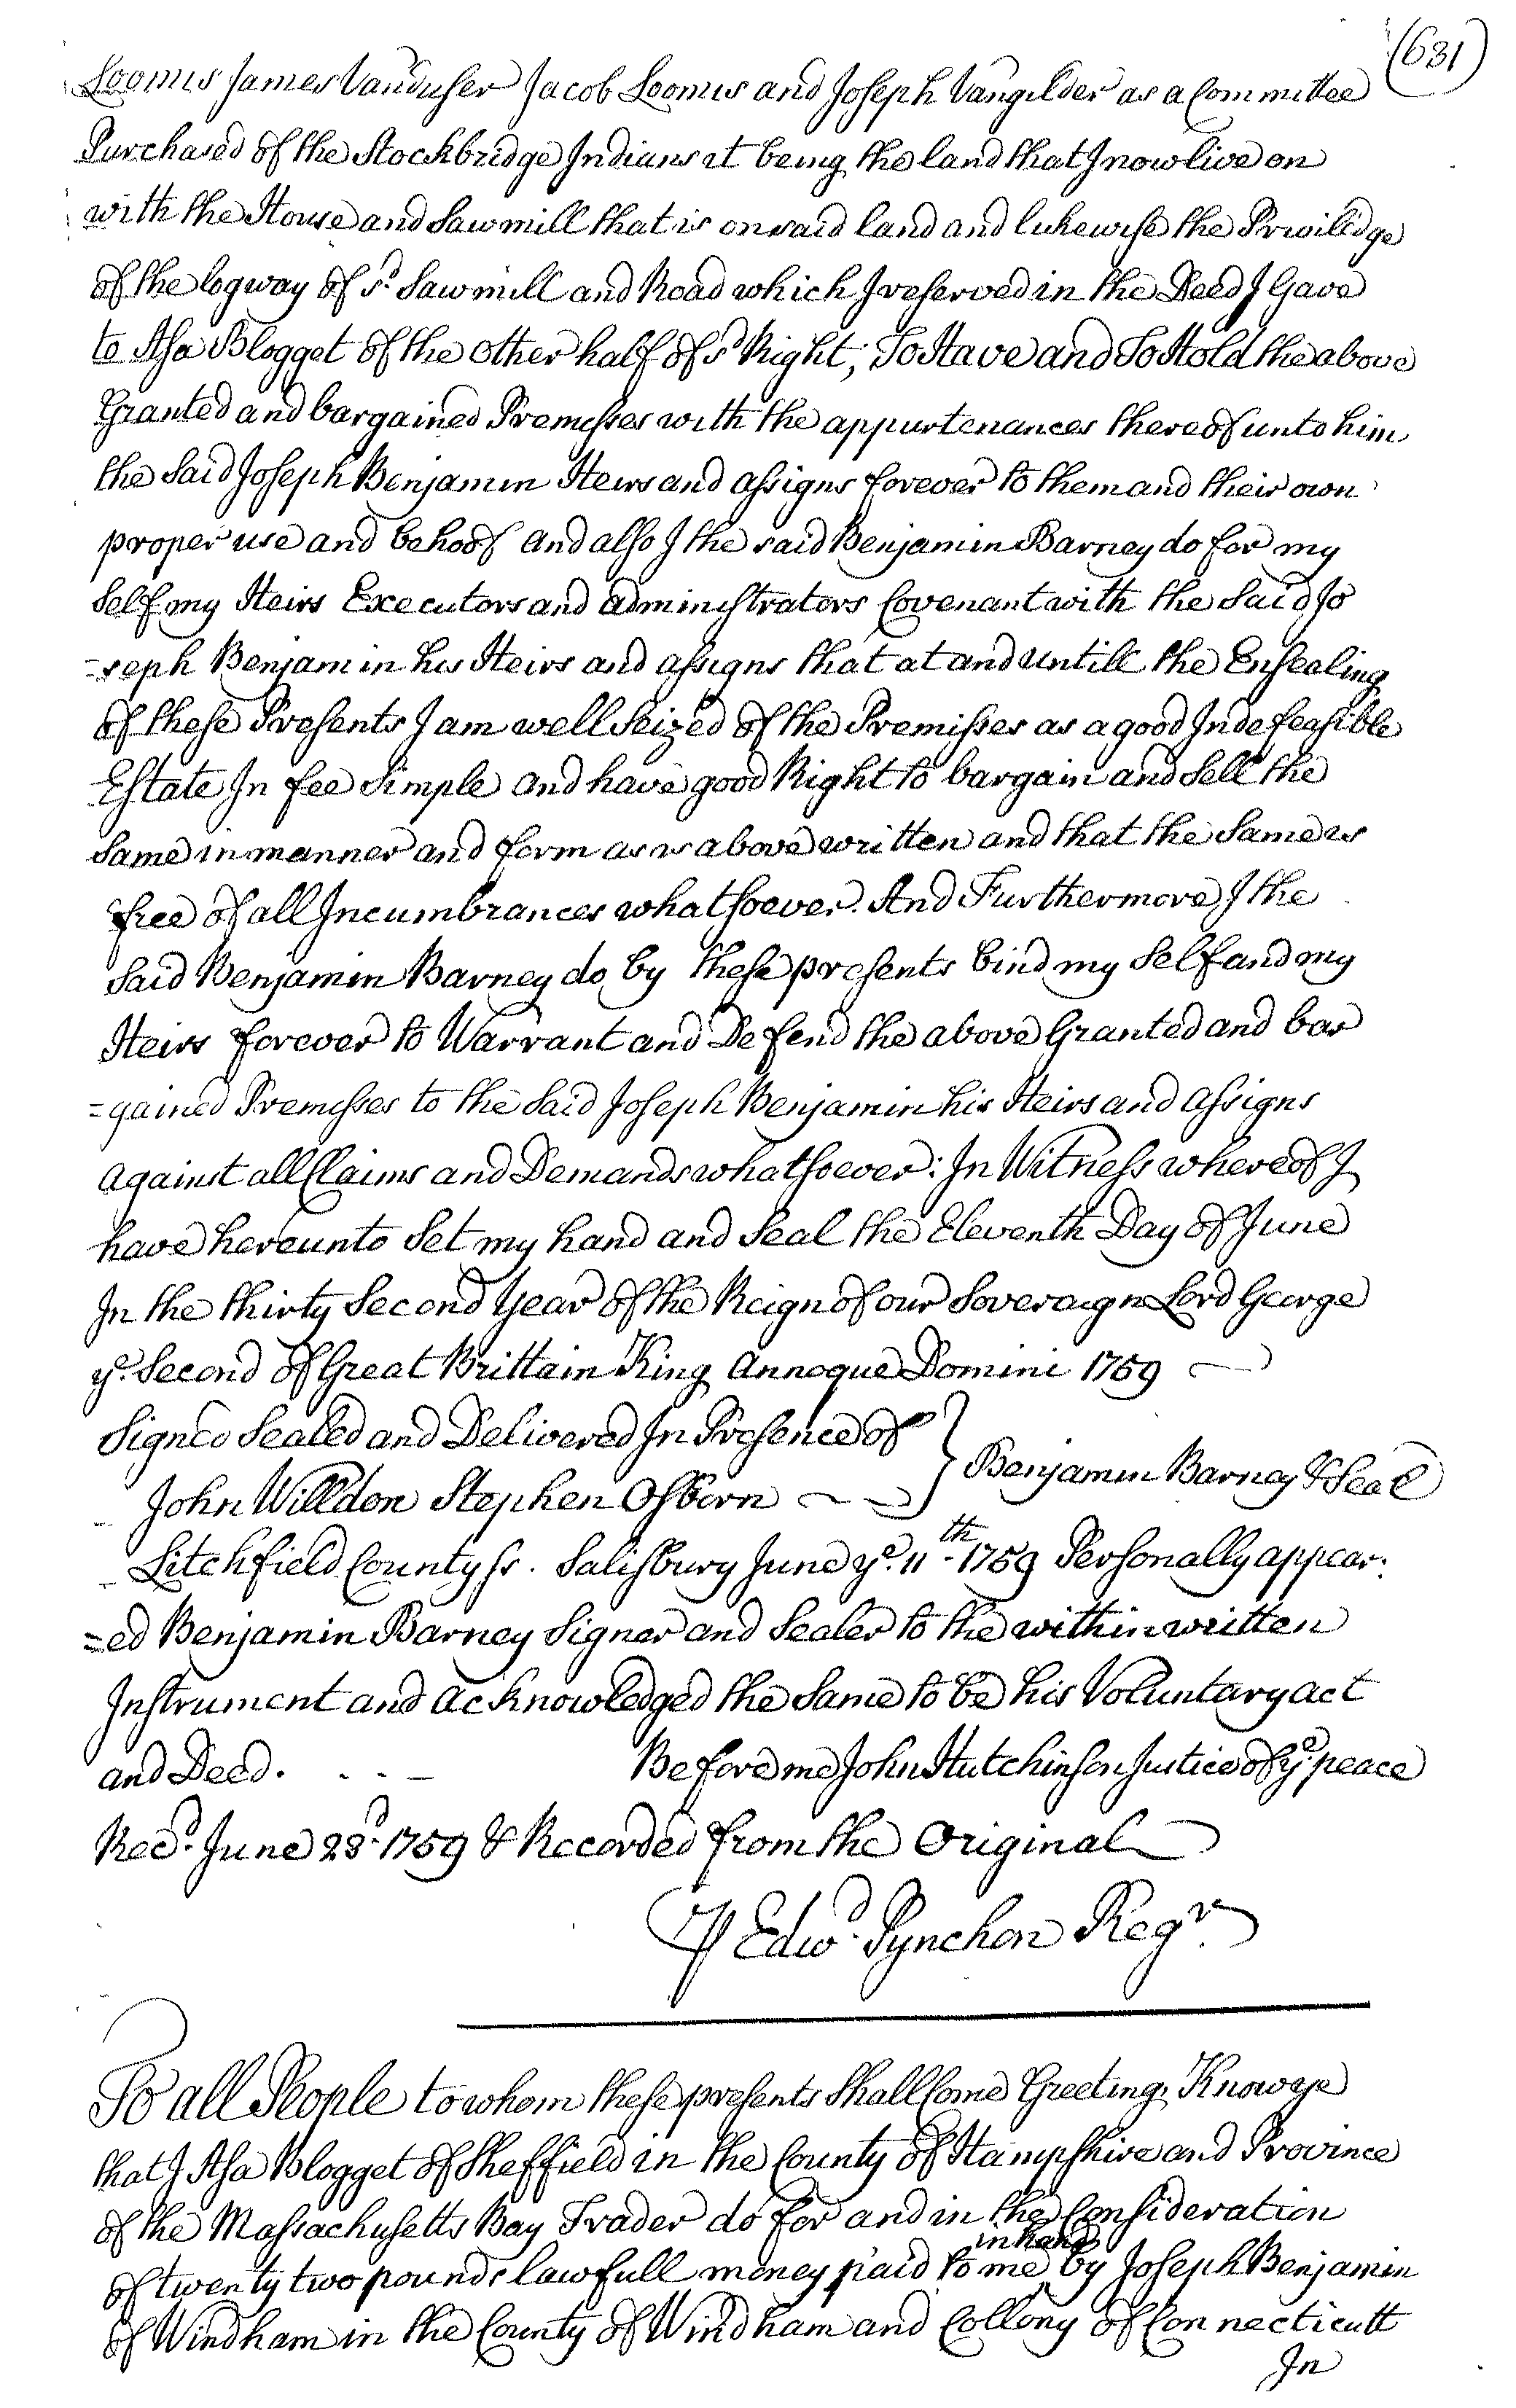 (631)
Loomis James Vanduser Jacob Loomis and Joseph Vangilder as a Committee
Purchased of the Stockbridge Indians it being the land that I now live on
with the House and Sawmill that is on said land and likewise the Priviledge
of the logway of sd. Sawmill and Road which I reserved in the Deed I Gave
to Asa Blogget of the other half of sd Right; To Have and To Hold the above
Granted and bargained Premisses with the appurtenances thereof unto him
the Said Joseph Benjamin Heirs and assigns forever to them and their own
proper use and behoof and also I the said Benjamin Barney do for my
Self my Heirs Executors and administrators Covenant with the Said Jo
=seph Benjamin his Heirs and assigns that at and untill the Ensealing
of these Presents I am well Seized of the Premisses as a good Indefeasible
Estate In fee Simple and have good Right to bargain and Sell the
Same in manner and form as is above written and that the Same is
free of all Incumbrances whatsoever. And Furthermore I the
Said Benjamin Barney do by these presents bind my Self and my
Heirs forever to Warrant and Defend the above Granted and bar
=gained Premisses to the Said Joseph Benjamin his Heirs and assigns
against all Claims and Demands whatsoever: In Witness whereof I
have hereunto Set my hand and Seal the Eleventh Day of June
In the thirty Second Year of the Reign of our Soveraign Lord George
ye. Second of Great Brittain King Annoque Domini 1759
Signed Sealed and Delivered In Presence of
John Willdon Stephen Osborn } Benjamin Barney & Seal
Litchfield County ss. Salisbury June ye. 11th 1759 Personally appear:
=ed Benjamin Barney Signer and Sealer to the within written
Instrument and acknowledged the Same to be his Voluntary act
and Deed. . . . Before me John Hutchinson Justice of ye. peace
Recd. June 23d. 1759 & Recorded from the Original
⅌ Edwd. Pynchon Regr.
To all People to whom these presents Shall Come Greeting, Know ye
that I Asa Blogget of Sheffield in the County of Hampshire and Province
of the Massachusetts Bay Trader do for and in the Consideration
in hand
of twenty two pounds lawfull money paid to me by Joseph Benjamin
of Windham in the County of Windham and Collony of Connecticutt
In